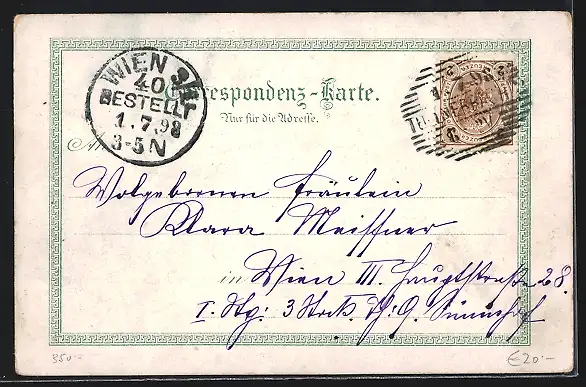 WIEN 3/1
40
BESTELLT
1.7.98
3-5N
Correspondenz-Karte.
Nur für die Adresse.
An
Wolgebornen Fräulein
Klara Meissner
in Wien III. Hauptstraße 28.
I. Stg: 3 Stock Th: 9. Sünnhof
350.-
€20.-